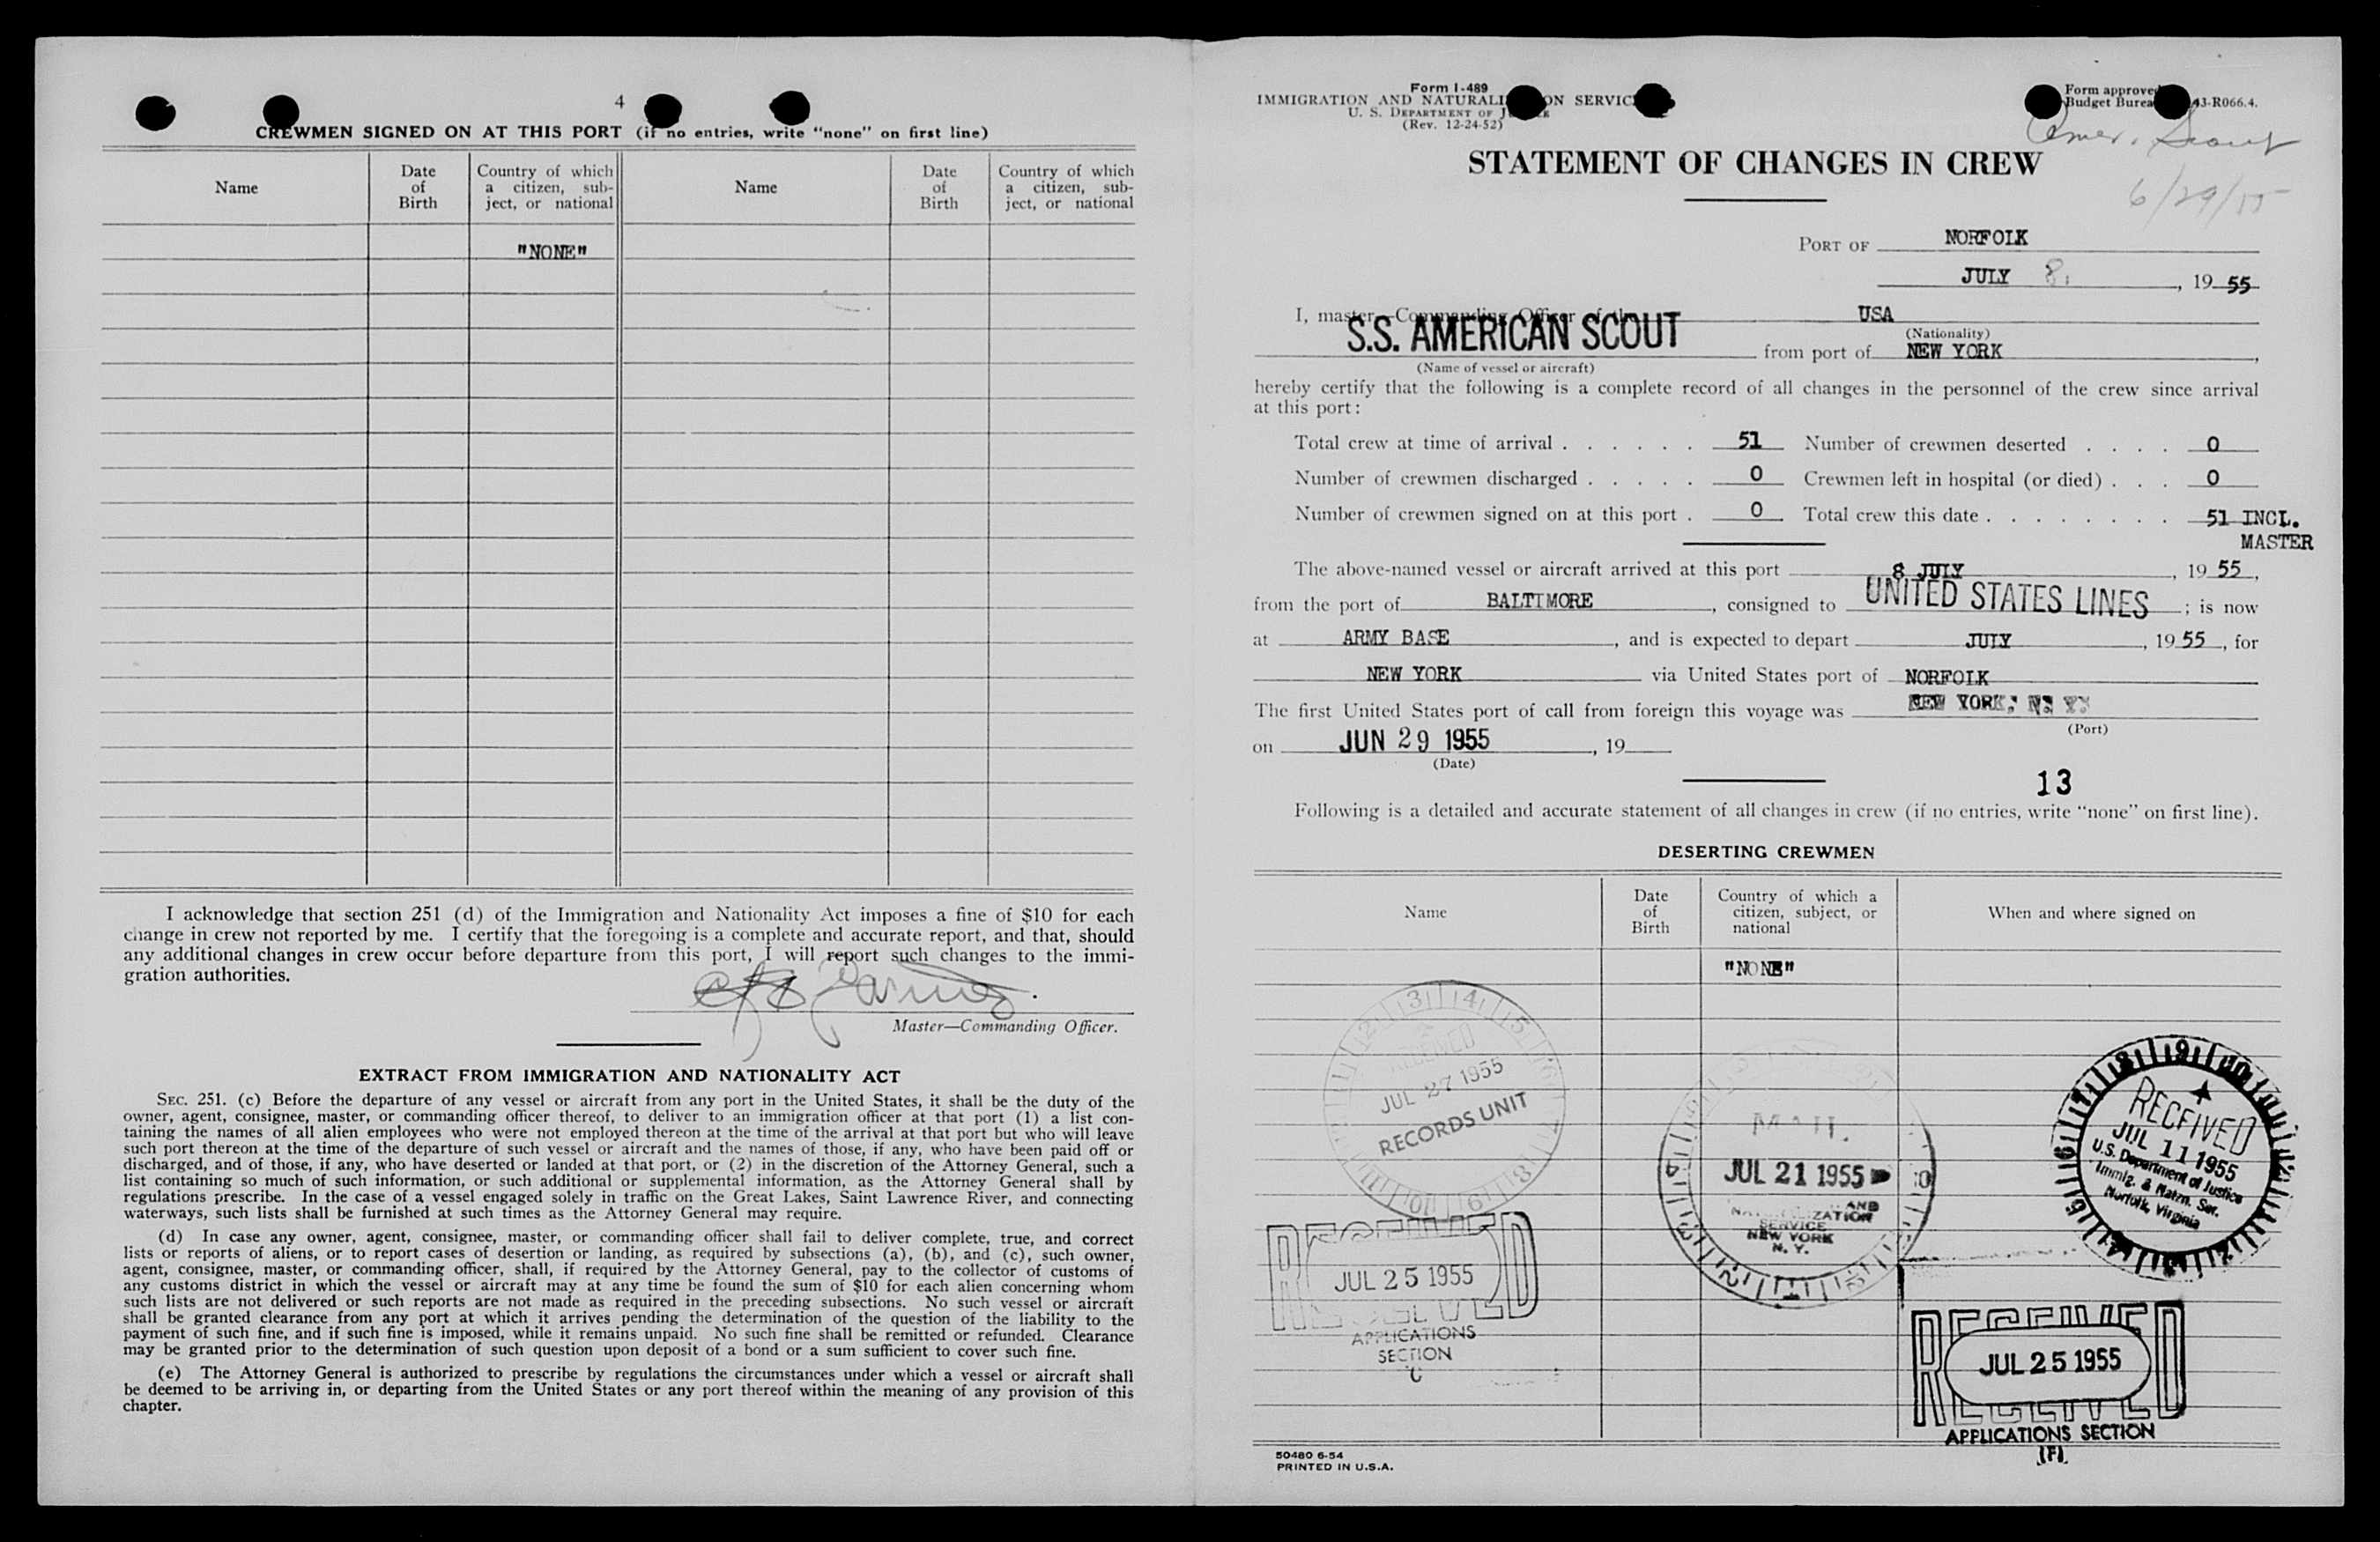 4
CREWMEN SIGNED ON AT THIS PORT (if no entries, write "none" on first line)
Name
Date of Birth
Country of which a citizen, sub-ject, or national
Name
Date of Birth
Country of which a citizen, sub-ject, or national
"NONE"
I acknowledge that section 251 (d) of the Immigration and Nationality Act imposes a fine of $10 for each
change in crew not reported by me. I certify that the foregoing is a complete and accurate report, and that, should
any additional changes in crew occur before departure from this port, I will report such changes to the immi-
gration authorities.
Master—Commanding Officer.
EXTRACT FROM IMMIGRATION AND NATIONALITY ACT
SEC. 251. (c) Before the departure of any vessel or aircraft from any port in the United States, it shall be the duty of the
owner, agent, consignee, master, or commanding officer thereof, to deliver to an immigration officer at that port (1) a list con-
taining the names of all alien employees who were not employed thereon at the time of the arrival at that port but who will leave
such port thereon at the time of the departure of such vessel or aircraft and the names of those, if any, who have been paid off or
discharged, and of those, if any, who have deserted or landed at that port, or (2) in the discretion of the Attorney General, such a
list containing so much of such information, or such additional or supplemental information, as the Attorney General shall by
regulations prescribe. In the case of a vessel engaged solely in traffic on the Great Lakes, Saint Lawrence River, and connecting
waterways, such lists shall be furnished at such times as the Attorney General may require.
(d) In case any owner, agent, consignee, master, or commanding officer shall fail to deliver complete, true, and correct
lists or reports of aliens, or to report cases of desertion or landing, as required by subsections (a), (b), and (c), such owner,
agent, consignee, master, or commanding officer, shall, if required by the Attorney General, pay to the collector of customs of
any customs district in which the vessel or aircraft may at any time be found the sum of $10 for each alien concerning whom
such lists are not delivered or such reports are not made as required in the preceding subsections. No such vessel or aircraft
shall be granted clearance from any port at which it arrives pending the determination of the question of the liability to the
payment of such fine, and if such fine is imposed, while it remains unpaid. No such fine shall be remitted or refunded. Clearance
may be granted prior to the determination of such question upon deposit of a bond or a sum sufficient to cover such fine.
(e) The Attorney General is authorized to prescribe by regulations the circumstances under which a vessel or aircraft shall
be deemed to be arriving in, or departing from the United States or any port thereof within the meaning of any provision of this
chapter.
Form I-489
IMMIGRATION AND NATURALI ON SERVIC
U. S. DEPARTMENT OF
(Rev. 12-24-52)
Form approve
Budget Burea 43-R066.4.
Amer. Scout
6/29/55
STATEMENT OF CHANGES IN CREW
PORT OF NORFOLK
JULY 8, 19 55
I, master—Commanding Officer of the USA
(Nationality)
S.S. AMERICAN SCOUT from port of NEW YORK,
(Name of vessel or aircraft)
hereby certify that the following is a complete record of all changes in the personnel of the crew since arrival
at this port:
Total crew at time of arrival . . . . . . 51 Number of crewmen deserted . . . . 0
Number of crewmen discharged . . . . . 0 Crewmen left in hospital (or died) . . . 0
Number of crewmen signed on at this port . 0 Total crew this date . . . . . . . . 51 INCL.
MASTER
The above-named vessel or aircraft arrived at this port 8 JULY, 19 55,
from the port of BALTIMORE, consigned to UNITED STATES LINES; is now
at ARMY BASE, and is expected to depart JULY, 19 55, for
NEW YORK via United States port of NORFOLK
The first United States port of call from foreign this voyage was NEW YORK, N. Y.
(Port)
on JUN 29 1955, 19
(Date)
13
Following is a detailed and accurate statement of all changes in crew (if no entries, write "none" on first line).
DESERTING CREWMEN
Name
Date of Birth
Country of which a citizen, subject, or national
When and where signed on
"NONE"
RECEIVED
JUL 27 1955
RECORDS UNIT
MAIL
JUL 21 1955
AND
NATURALIZATION
SERVICE
NEW YORK
N. Y.
RECEIVED
JUL 11 1955
U.S. Department of Justice
Immig. & Natzn. Ser.
Norfolk, Virginia
RECEIVED
JUL 25 1955
APPLICATIONS
SECTION
C
RECEIVED
JUL 25 1955
APPLICATIONS SECTION
(F)
50480 6-54
PRINTED IN U.S.A.